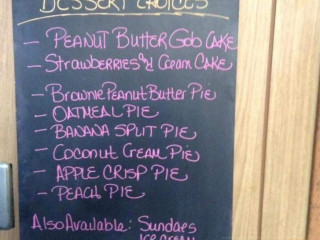 DESSERT CHOICES
- PEANUT BUTTER Gob CAKE
- Strawberries and Cream CAKE
- Brownie Peanut Butter Pie
- OATMEAL PIE
- BANANA SPLIT PIE
- Coconut Cream Pie
- APPLE CRISP PIE
- PEACH PIE
Also Available: Sundaes
ICE CREAM